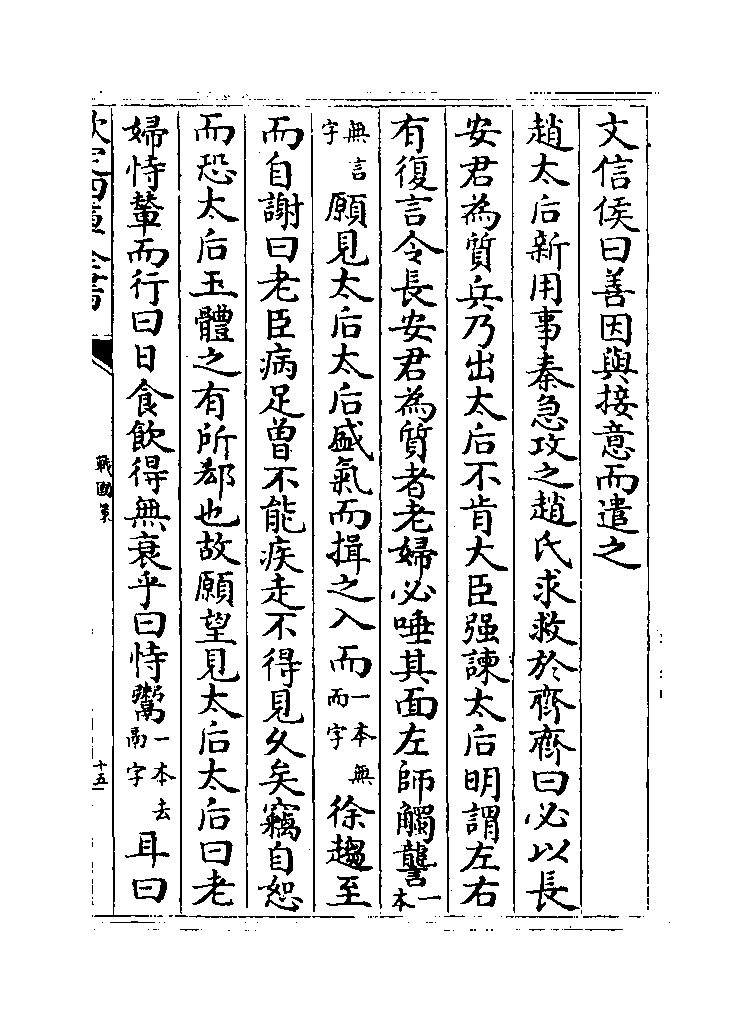 文信侯曰善因與接意而遣之
趙太后新用事秦急攻之趙氏求救於齊齊曰必以長
安君為質兵乃出太后不肯大臣强諫太后明謂左右
有復言令長安君為質者老婦必唾其面左師觸讋一本
無言字願見太后太后盛氣而揖之入而一本無而字徐趨至
而自謝曰老臣病足曾不能疾走不得見久矣竊自恕
而恐太后玉體之有所郄也故願望見太后太后曰老
婦恃輦而行曰日食飲得無衰乎曰恃鬻一本去鬲字耳曰
欽定四庫全書
戰國策
十五